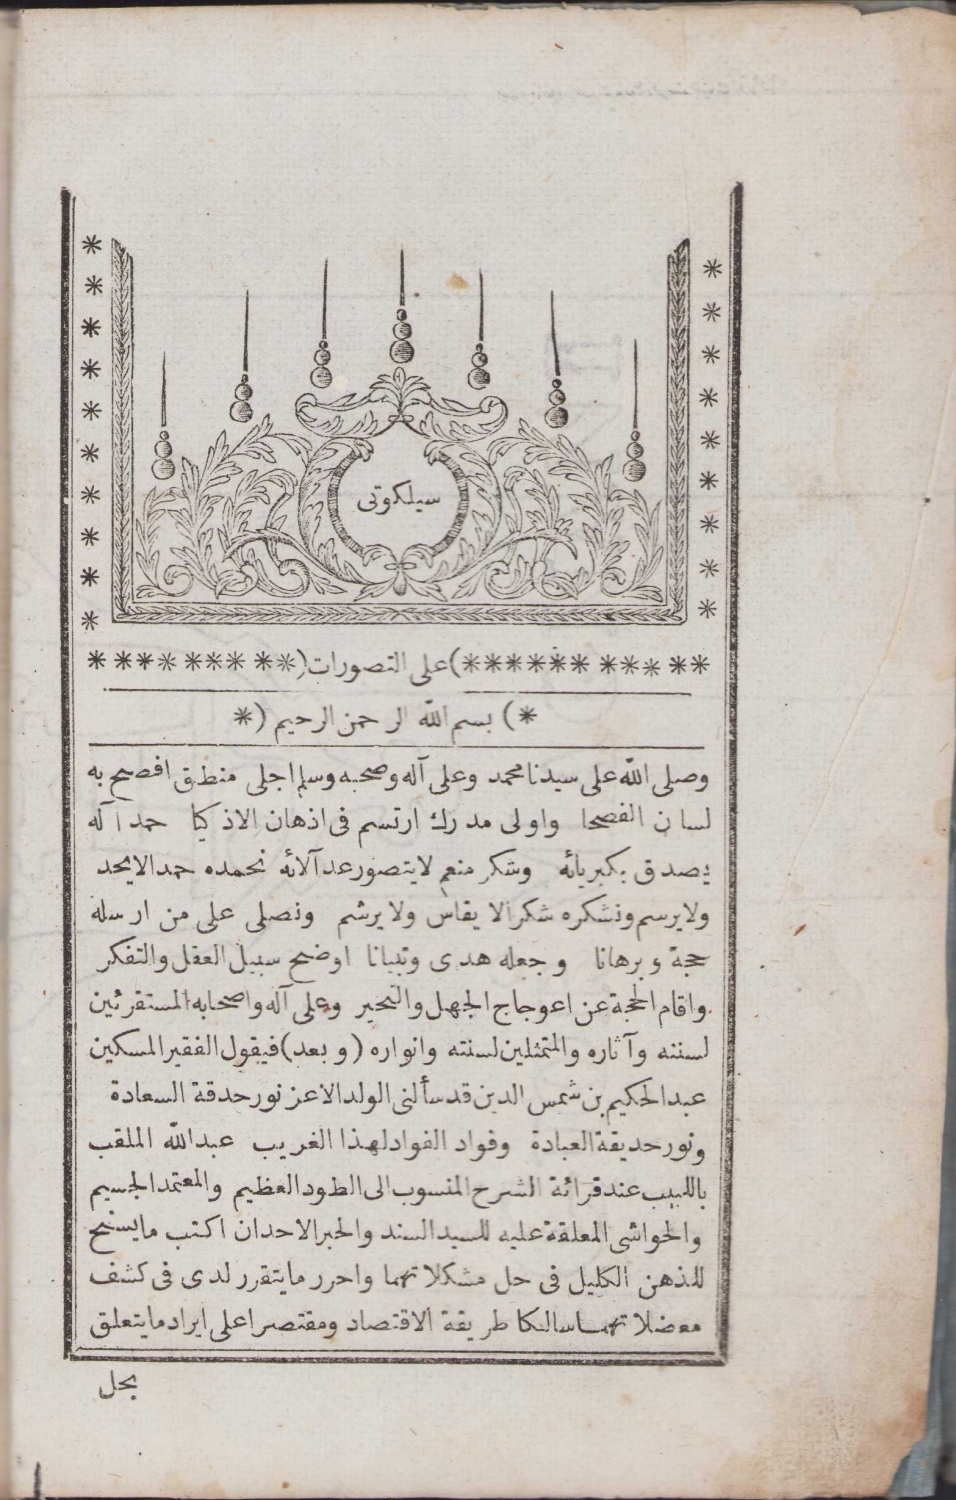 سيلكوتى
(على التصورات)
(بسم الله الرحمن الرحيم)
وصلى الله على سيدنا محمد وعلى آله وصحبه وسلم اجلى منطق افصح به
لسان الفصحا واولى مدرك ارتسم فى اذهان الاذكيا حمد آله
يصدق بكبريائه وشكر منعم لايتصور عد آلائه نحمده حمدا لايحد
ولايرسم ونشكره شكرا لا يقاس ولايرشم ونصلى على من ارسله
حجة وبرهانا وجعله هدى وتبيانا اوضح سبيل العقل والتفكر
واقام الحجة عن اعوجاج الجهل والتحير وعلى آله واصحابه المستقرئين
لسننه وآثاره والمتمثلين لسنته وانواره (وبعد) فيقول الفقير المسكين
عبد الحكيم بن شمس الدين قد سألنى الولد الاعز نور حدقة السعادة
ونور حديقة العبادة وفواد الفواد لهذا الغريب عبد الله الملقب
باللبيب عند قرائة الشرح المنسوب الى الطود العظيم والمعتمد الجسيم
والحواشى المعلقة عليه للسيد السند والحبر الاحد ان اكتب مايسنح
للذهن الكليل فى حل مشكلاتهما واحرر مايتقرر لدى فى كشف
معضلاتهما سالكا طريقة الاقتصاد ومقتصرا على ايراد مايتعلق
بحل